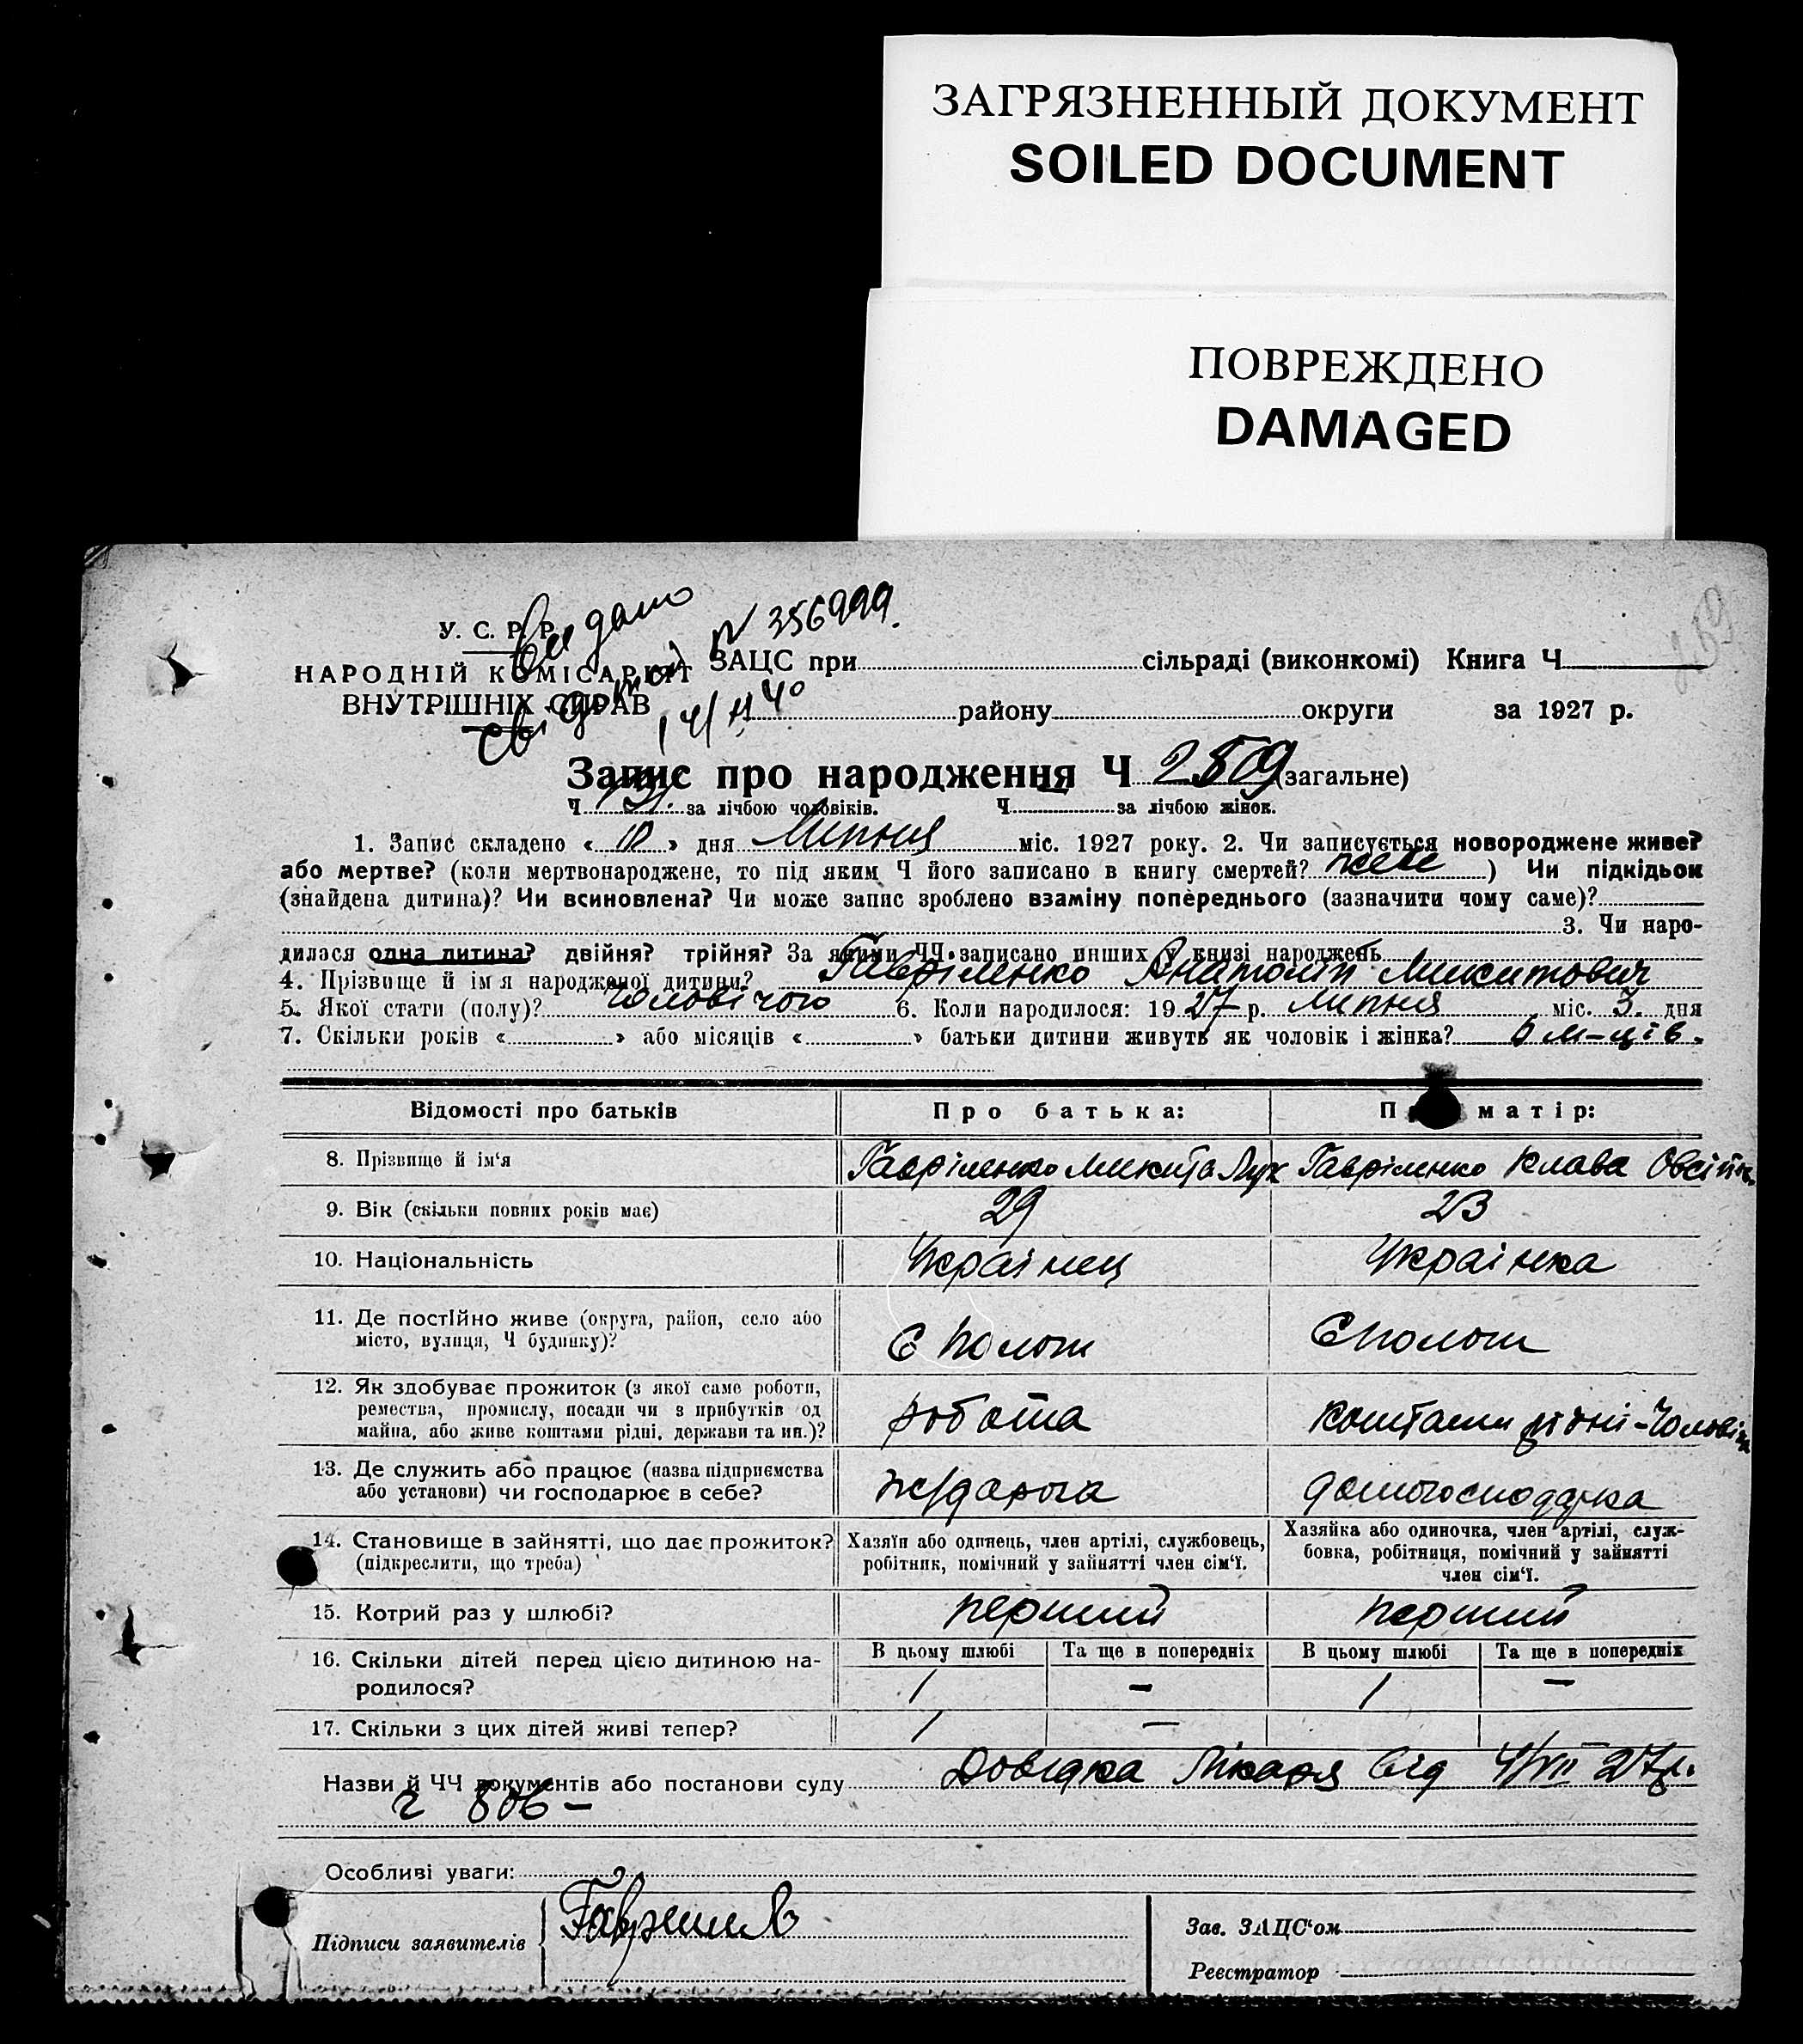 ЗАГРЯЗНЕННЫЙ ДОКУМЕНТ
SOILED DOCUMENT
ПОВРЕЖДЕНО
DAMAGED
У. С. Р. Р.
НАРОДНІЙ КОМІСАРІЯТ
ВНУТРІШНІХ СПРАВ
Видано
N 356999.
ЗАЦС при сільраді (виконкомі) Книга Ч
району округи за 1927 р.
Запис про народження Ч 2509 (загальне)
Ч за лічбою чоловіків. Ч — за лічбою жінок.
1. Запис складено « » дня Липня міс. 1927 року. 2. Чи записується новороджене живе?
або мертве? (коли мертвонароджене, то під яким Ч його записано в книгу смертей? живе ) Чи підкідьок
(знайдена дитина)? Чи всиновлена? Чи може запис зроблено взаміну попереднього (зазначити чому саме)?
3. Чи наро-
дилася одна дитина? двійня? трійня? За якими ЧЧ записано инших у книзі народжень
4. Прізвище й ім'я народженої дитини? Гавріленко Анатолій Микитович
5. Якої стати (полу)? чоловічого 6. Коли народилося: 1927 р. Липня міс. 3. дня
7. Скільки років « » або місяців « » батьки дитини живуть як чоловік і жінка? м-ців.
Відомості про батьків Про батька: П матір:
8. Прізвище й ім'я Гавріленко Микита Лук Гавріленко Клава Овсіїв.
9. Вік (скільки повних років має) 29 23
10. Національність Украінец Украінка
11. Де постійно живе (округа, район, село або
місто, вулиця, Ч будинку)?
12. Як здобуває прожиток (з якої саме роботи, робота коштами рідні-Чоловіка
ремества, промислу, посади чи з прибутків од
майна, або живе коштами рідні, держави та ин.)?
13. Де служить або працює (назва підприємства ж/дорога домогосподарка
або установи) чи господарює в себе?
14. Становище в зайнятті, що дає прожиток? Хазяїн або одинець, член артілі, службовець, Хазяйка або одиночка, член артілі, служ-
(підкреслити, що треба) робітник, помічний у зайнятті член сім'ї. бовка, робітниця, помічний у зайнятті
член сім'ї.
15. Котрий раз у шлюбі? перший перший
16. Скільки дітей перед цією дитиною на- В цьому шлюбі Та ще в попередніх В цьому шлюбі Та ще в попередніх
родилося? 1 — 1 —
17. Скільки з цих дітей живі тепер? 1 —
Назви й ЧЧ документів або постанови суду Довідка Лікаря від 4/VII 27р.
ч 806 —
Особливі уваги:
Підписи заявителів
Зав. ЗАЦС'ом
Реєстратор